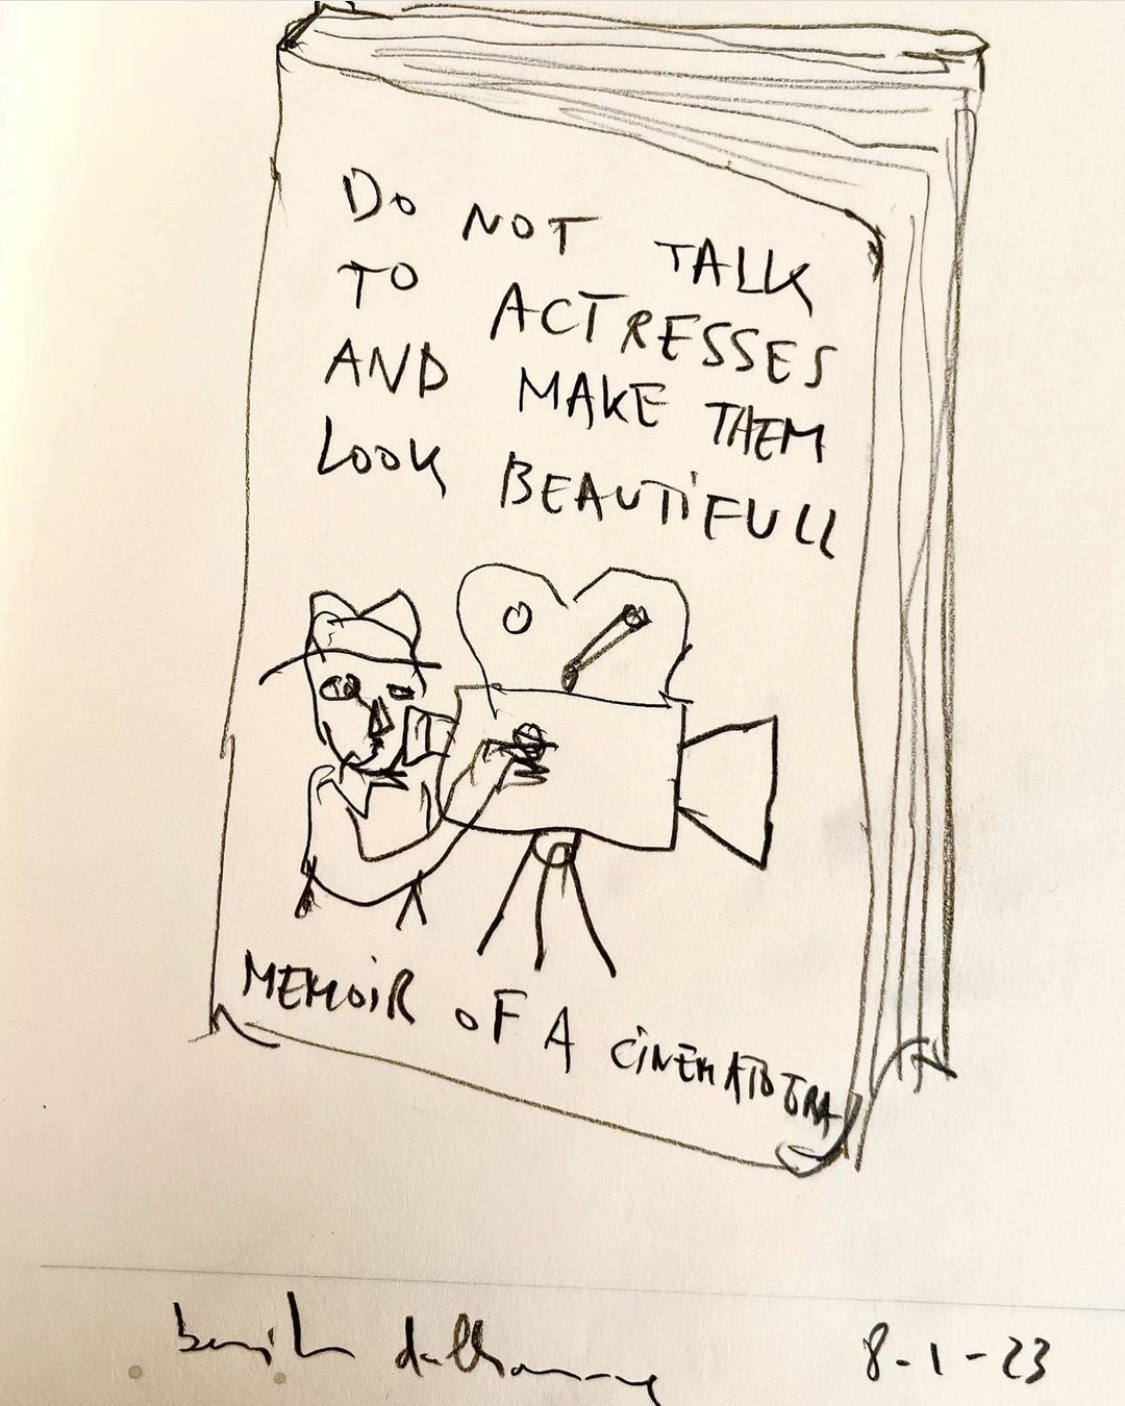 DO NOT TALK
TO ACTRESSES
AND MAKE THEM
LOOK BEAUTIFULL
MEMOIR OF A
8-1-23